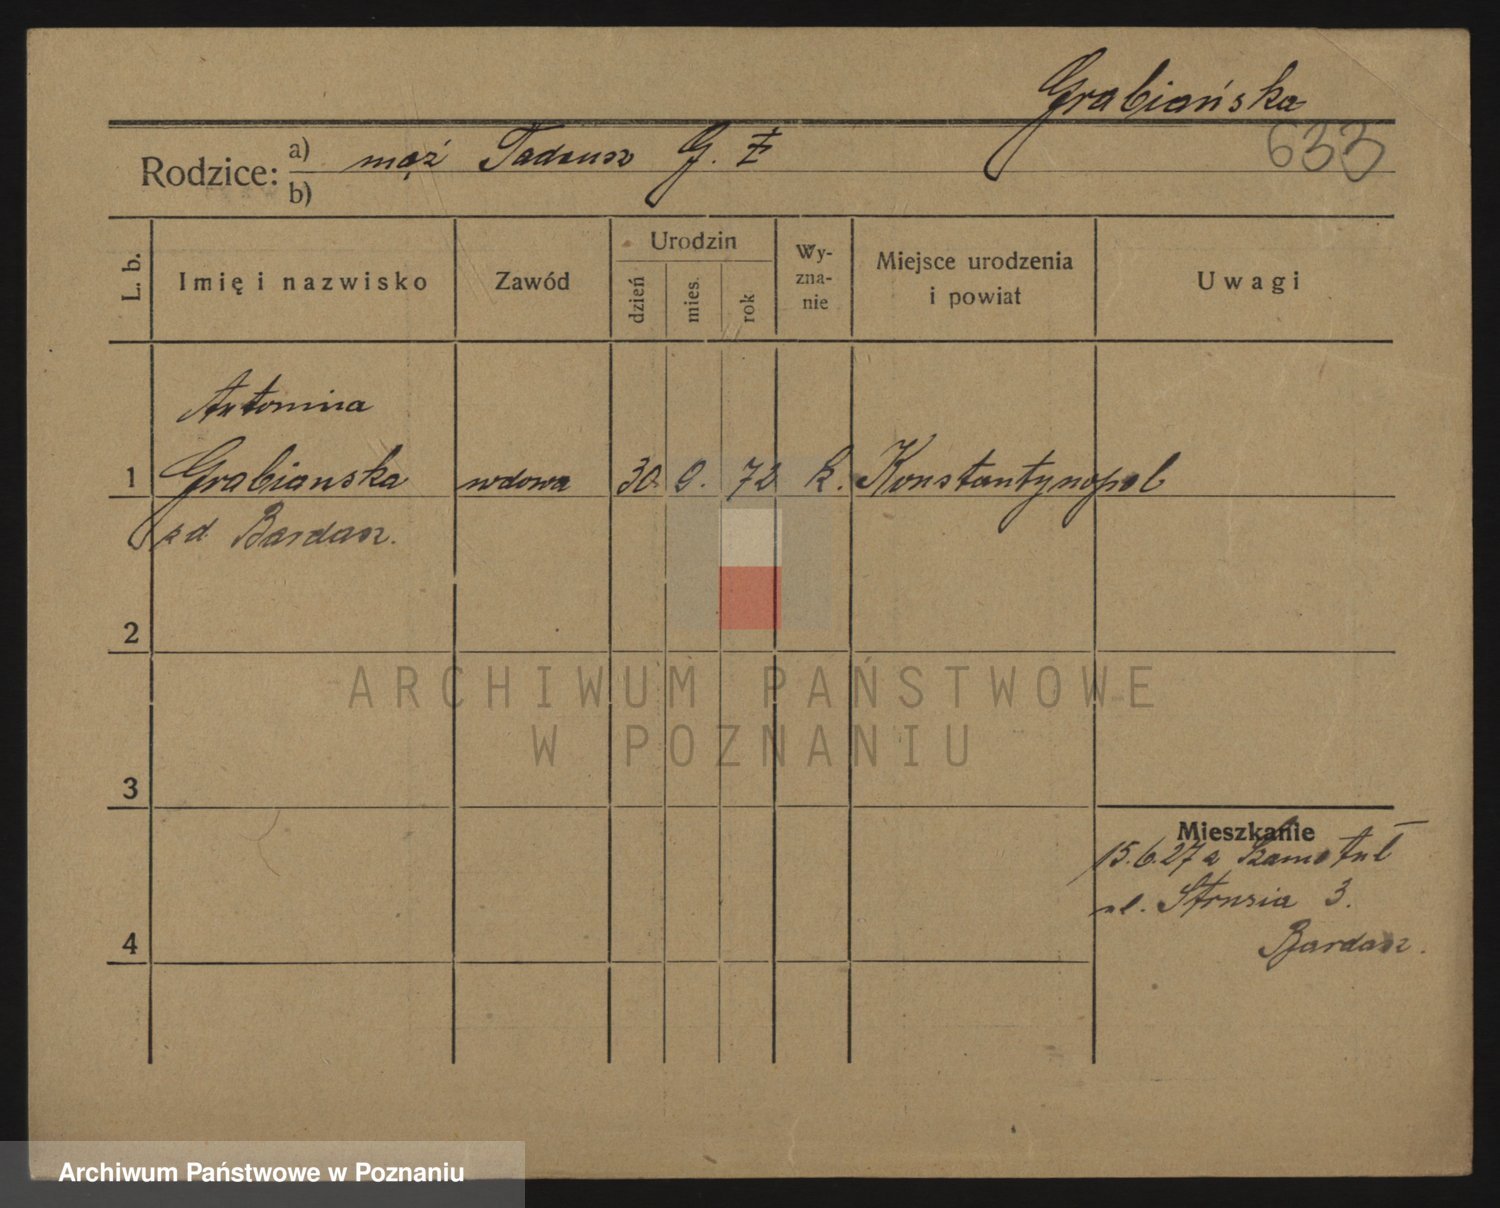 Grabiańska
633
Rodzice: a) mąż Tadeusz G. Ż
b)
L. b. Imię i nazwisko Zawód Urodzin dzień mies. rok Wy-zna-nie Miejsce urodzenia i powiat Uwagi
Antonina
1 Grabianska wdowa 30. 9. 72 k. Konstantynopol
zd Bardasz.
2
ARCHIWUM PAŃSTWOWE
W POZNANIU
3
Mieszkanie
15.6.27 z Szamotuł
ul. Strusia 3.
Bardasz.
4
Archiwum Państwowe w Poznaniu